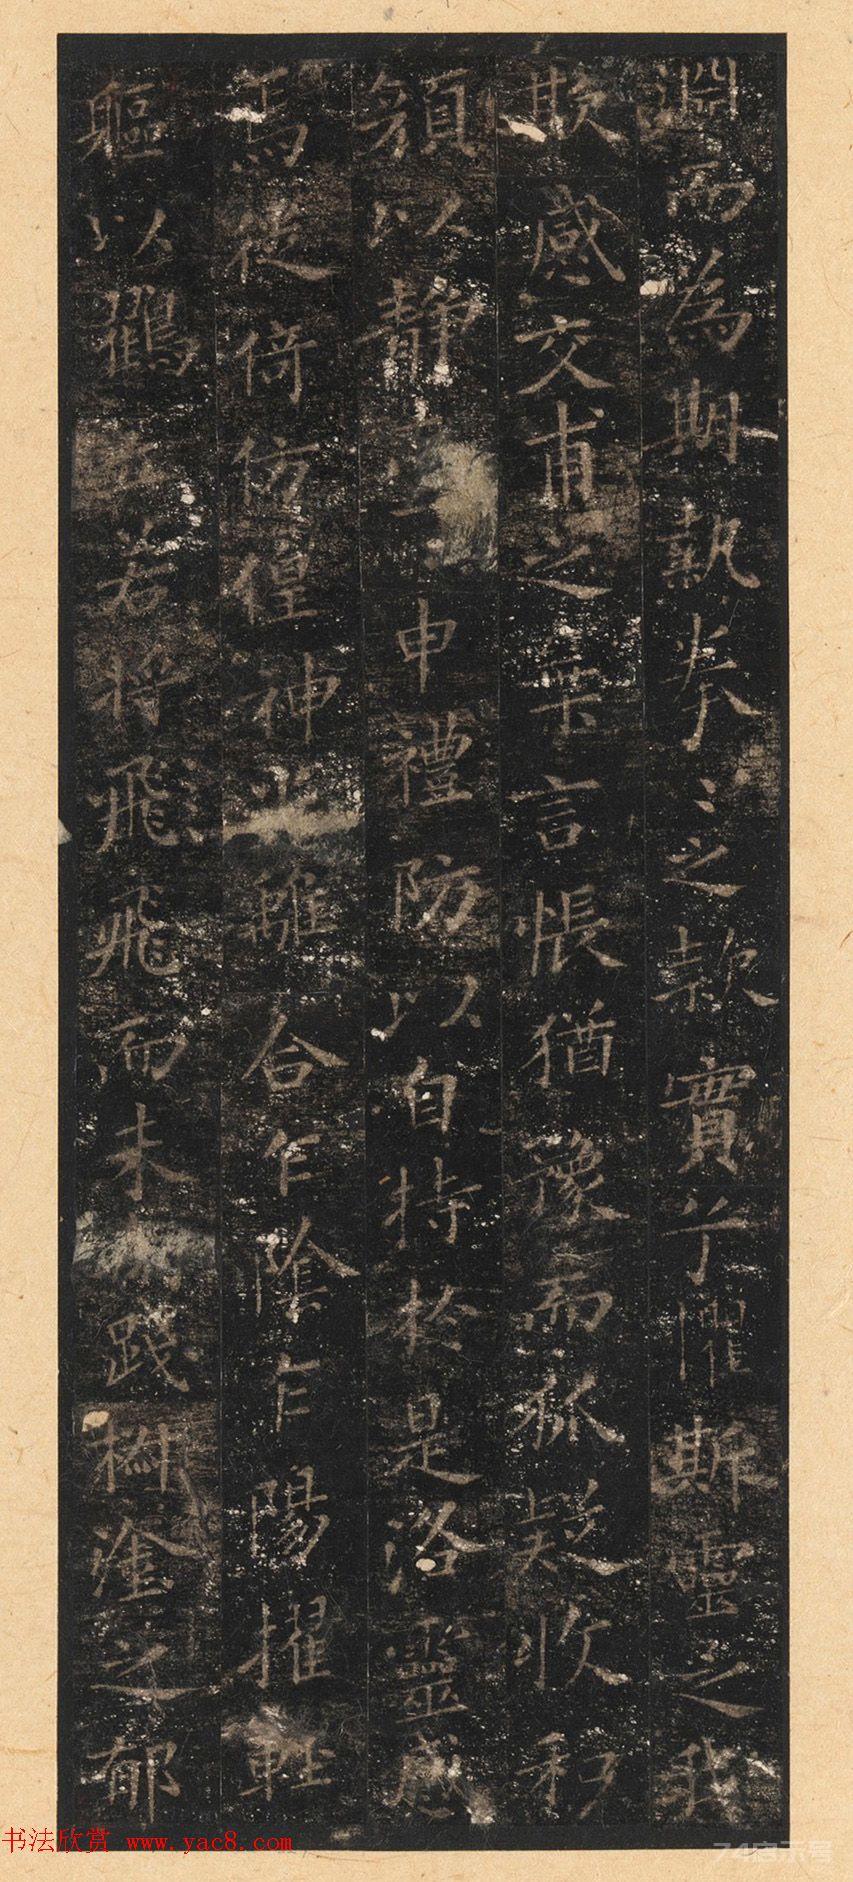 淵而為期執拳〻之款實兮懼斯靈之我
欺感交甫之棄言悵猶豫而狐疑收和
顏以静申禮防以自持於是洛靈感
焉徙倚仿偟神光離合乍陰乍陽擢輕
軀以鶴立若將飛飛而未踐椒塗之郁
书法欣赏 www.yac8.com